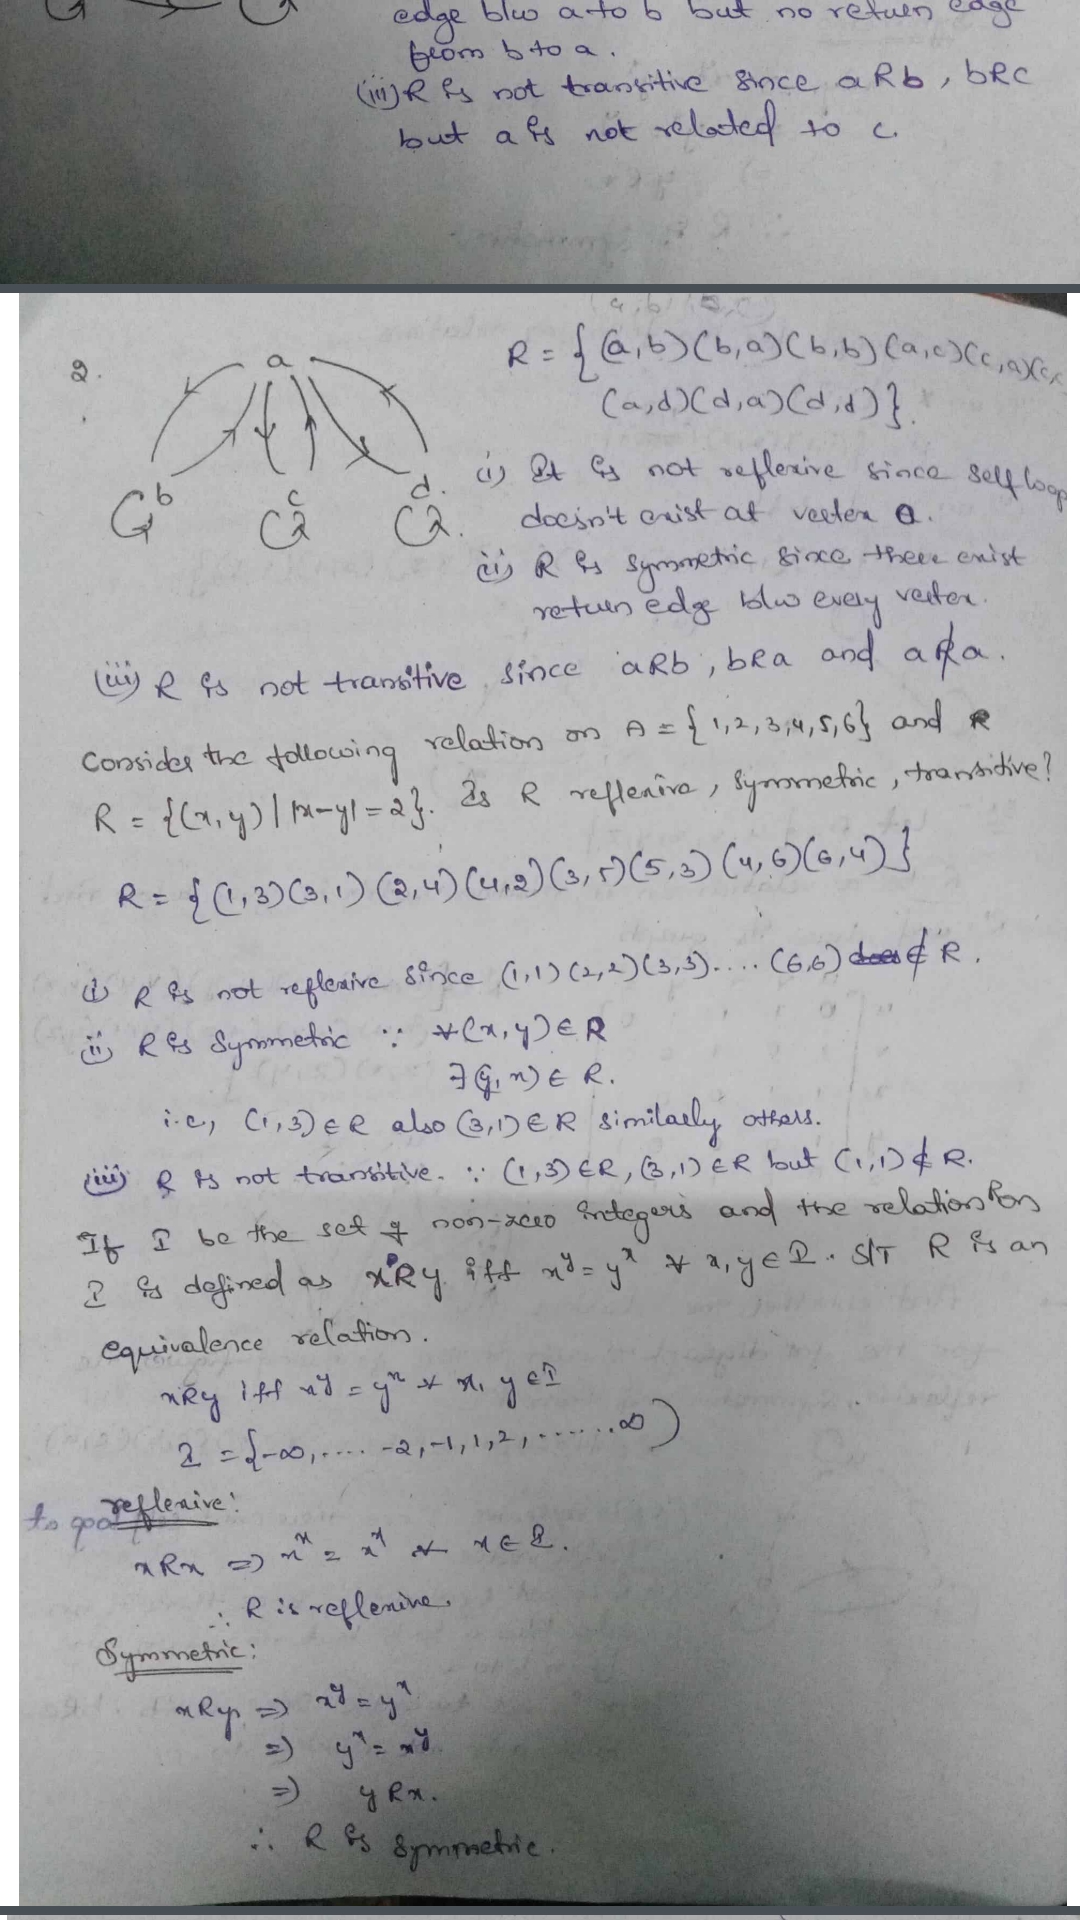 edge b/w a to b but no return edge
from b to a.
(iii) R is not transitive since aRb, bRc
but a is not related to c.
2.
a
b
c
d.
R = { (a,b)(b,a)(b,b)(a,c)(c,a)(c,
(a,d)(d,a)(d,d)}.
(i) It is not reflexive since self loop
doesn't exist at vertex a.
(ii) R is symmetric since there exist
return edge b/w every vertex.
(iii) R is not transitive since aRb, bRa and a R̸ a.
Consider the following relation on A = {1,2,3,4,5,6} and
R = {(x,y) | |x-y| = 2}. Is R reflexive, symmetric, transitive?
R = {(1,3)(3,1)(2,4)(4,2)(3,5)(5,3)(4,6)(6,4)}
(i) R is not reflexive since (1,1)(2,2)(3,3).... (6,6) ∉ R.
(ii) R is symmetric ∵ ∀(x,y) ∈ R
∃(y,x) ∈ R.
i.e, (1,3) ∈ R also (3,1) ∈ R similarly others.
(iii) R is not transitive. ∵ (1,3) ∈ R, (3,1) ∈ R but (1,1) ∉ R.
If I be the set of non-zero integers and the relation R on
I is defined as xRy iff x^y = y^x ∀ x,y ∈ I. S/T R is an
equivalence relation.
xRy iff x^y = y^x ∀ x, y ∈ I
I = {-∞,.... -2,-1,1,2,.......∞)
reflexive:
xRx ⇒ x^x = x^x ∀ x ∈ I.
∴ R is reflexive.
Symmetric:
xRy ⇒ x^y = y^x
⇒ y^x = x^y
⇒ yRx.
∴ R is symmetric.